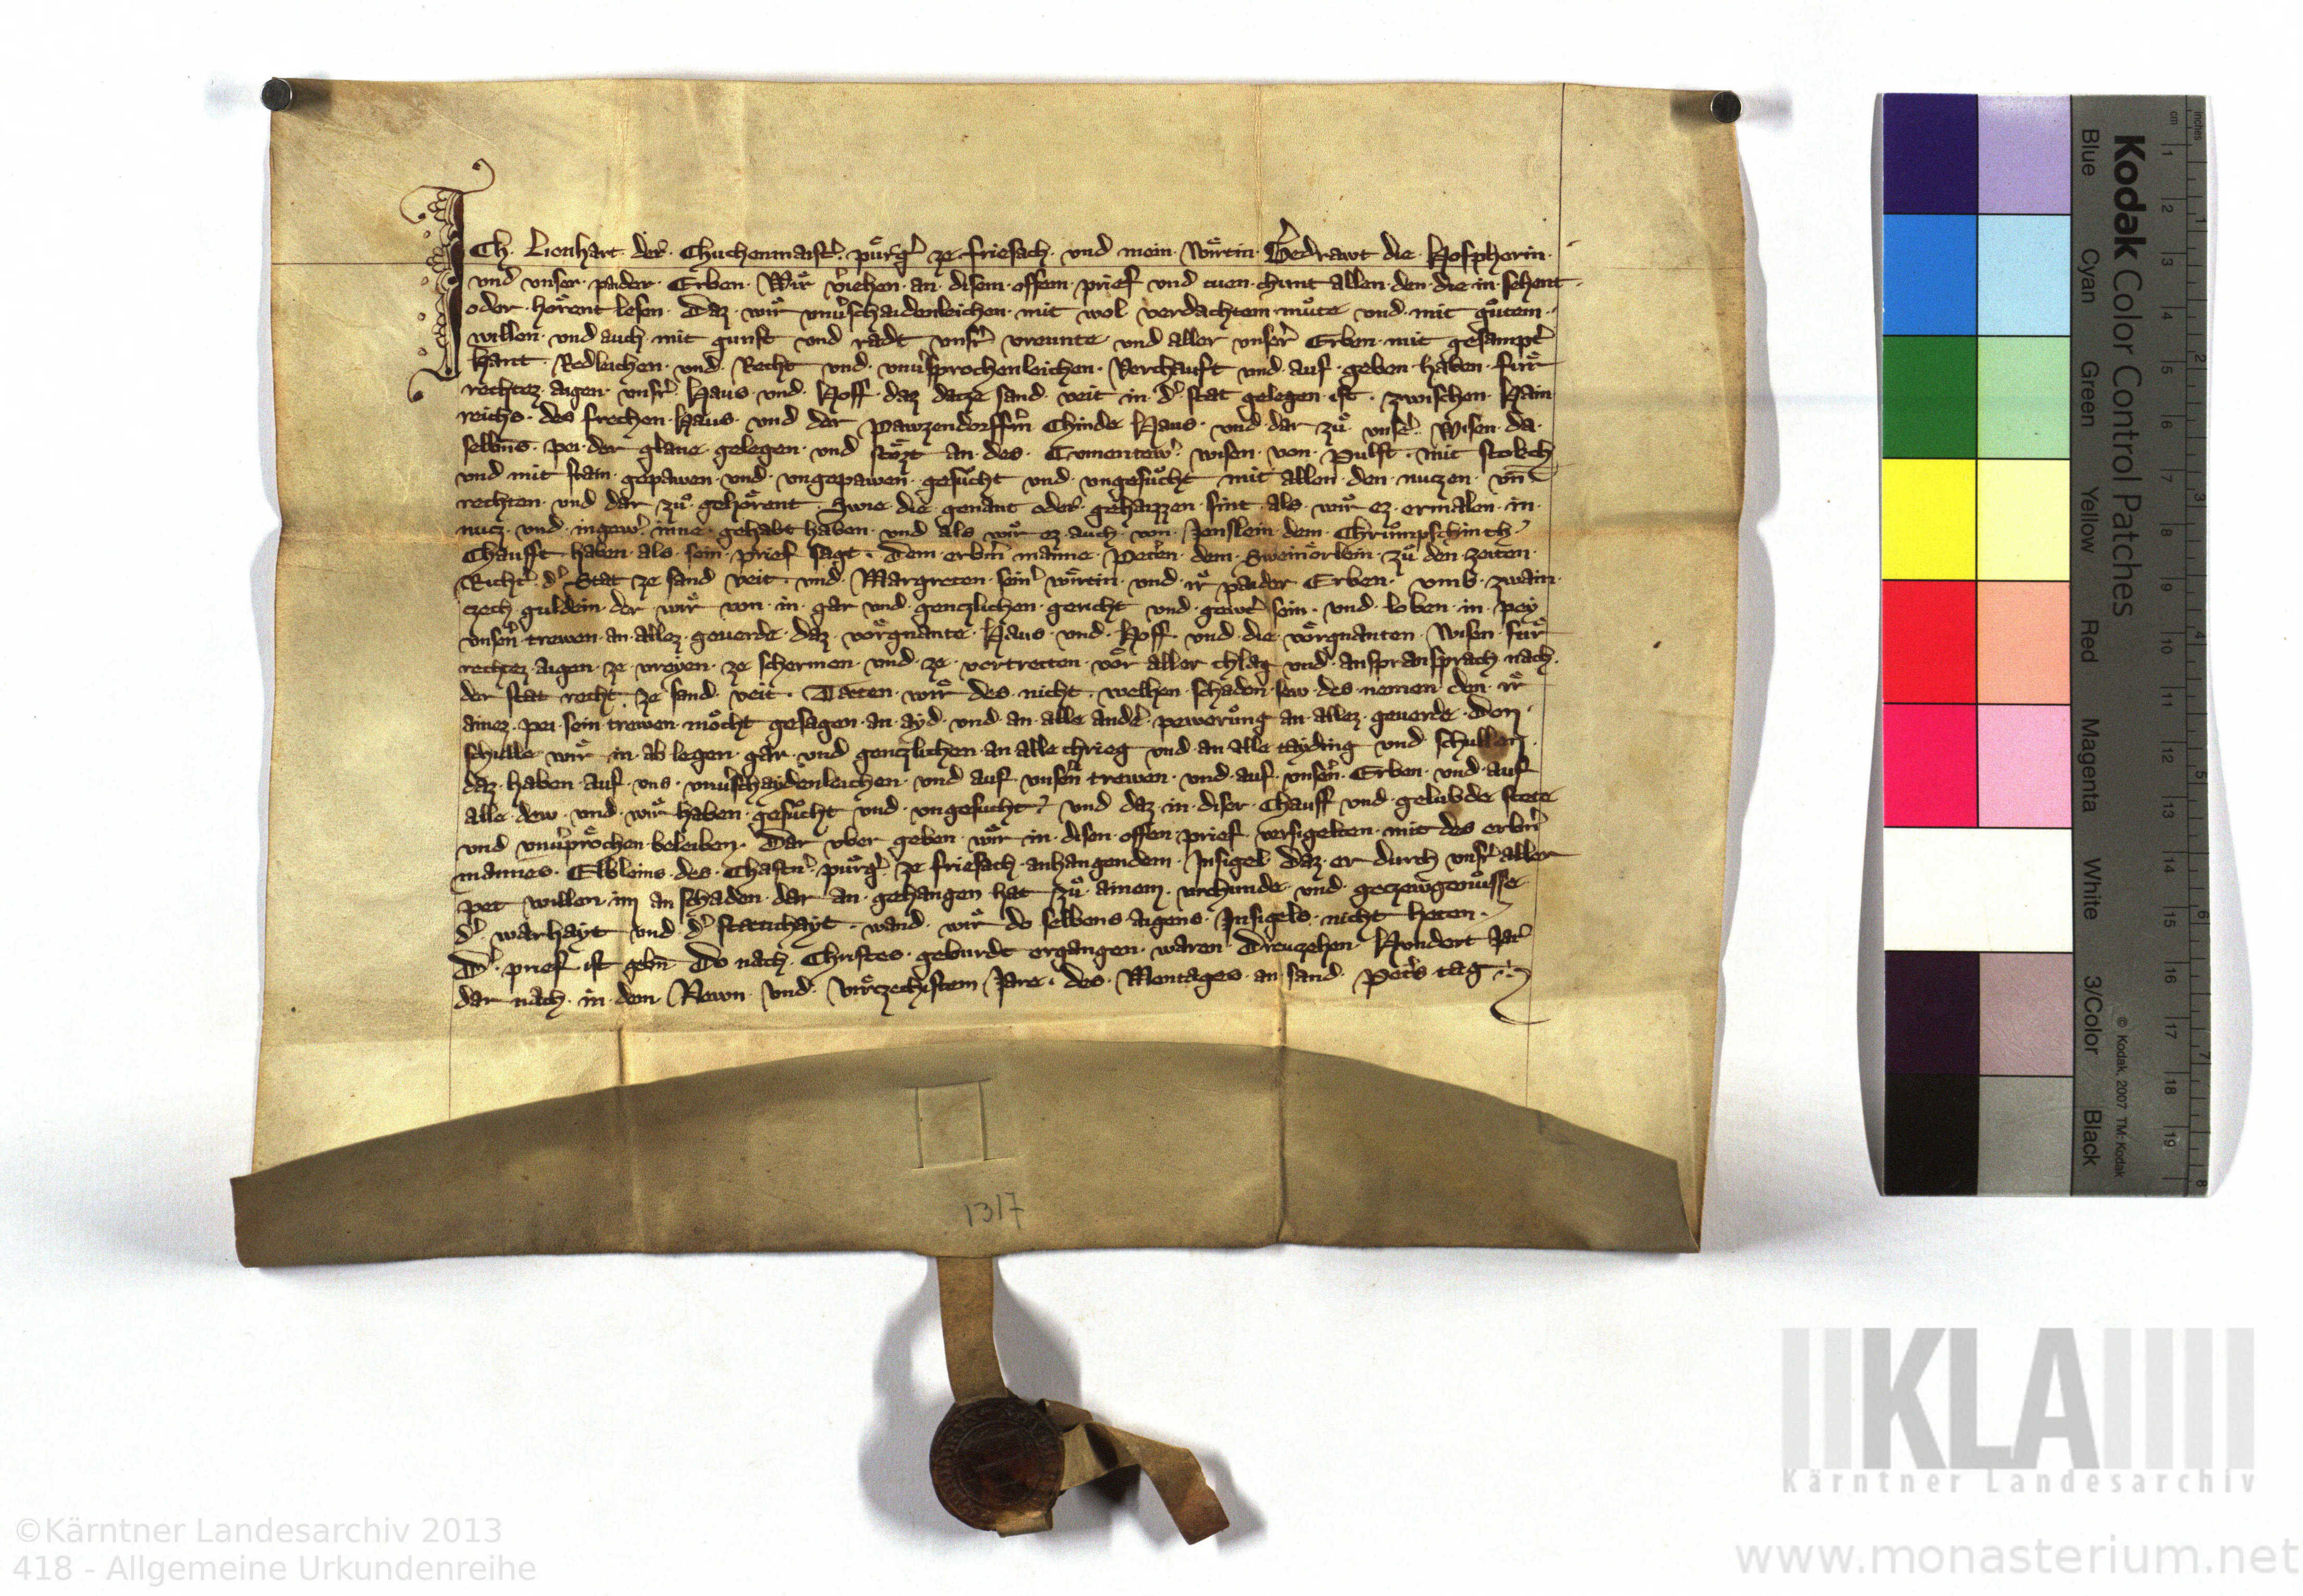 ICh · Lienhart · der · Chuchenmaist͛ · půrg͛ ze friesach · vnd mein · Wirtin · Gedrawt die Hospherin ·
vnd vnser · paider · Erben · Wir v͛iehen · an · disem · offem · prief vnd tuen · chunt allen · den · die in · sehent ·
oder · hörent lesen · Daz · wir vnu͛schaidenleichen · mit wol verdachtem · můte vnd · mit gůtem ·
willen · vnd auch · mit gunst vnd rådt vnsr͛ vreunte vnd aller vnser͛ Erben · mit gesampt͛
hant · Redleichen · vnd · Recht vnd · vnu͛sprochenleichen · Verchauft vnd · auf · geben · haben · für
rechtez · aigen · vnsr͛ · Haus · vnd · Hoff · daz datze sand · veit in · d͛ · stat gelegen · ist · zwischen · Hain
reichs · des frechen · Haus · vnd der pawzendorfferin͛ Chinde Haus · vnd · dar zů · vnser͛ · Wisen · da ·
selbns · pei · der glane · gelegen · vnd stözt an · des · Cvmentewr͛ · wisen · von · Pulst · mit stokch
vnd · mit stain · gepawen · vnd · vngepawen · gesůcht vnd · vngesůcht mit allen · den · nuczen · vn̄
rechten · vnd dar zů · gehörent · Swie · die genant oder · gehaizzen · sint · als · wir ez · ermalen · in ·
nucz · vnd · ingew͛ · inne · gehabt haben · vnd als wir ez · auch · von · Jenslein · dem · Chrůmpschinch
Chaufft haben · als · sein · prief sagt · Dem · erbern͛ manne · Peter͛n · dem · Sweinörlein · zů den · zeiten ·
Richt͛ · d͛ · Stat ze sand veit · vnd · Margreten · sein͛ wirtin · vnd · ir paider Erben · vmb · zwain ·
czech guldein · der wir von · in · gar vnd · genczlichen · gericht vnd · gewert͛ sein · vnd · loben · in · pey
vnsern͛ trewen · an · allez · geuerde · daz vorgnante · Haus · vnd · Hoff · vnd · die · vorgnanten · Wisen · für
rechtez · aigen · ze · vreyen · ze schermen · vnd · ze · vertretten · vor aller chlag vnd · anspransprach · nach ·
der stat recht · ze sand · veit · Taeten · wir des · nicht · welhen · schaden · sew · des · nemen den · ir
ainez · pei · sein trewen · möcht gesagen · an · ayd · vnd · an · alle ander͛ · pewerůng an · allez · geuerde · den ·
schulle wir in · ab legen · gar · vnd genczlichen · an alle chrieg vnd · an alle tayding vnd schullen ·
daz · haben · auf · vns · vnu͛schaydenleichen · vnd auf vnsern͛ trewen · vnd · auf · vnsern͛ · Erben · vnd · auf
alle · dew · vnd · wir haben · gesůcht vnd · vngesucht · vnd daz · in · diser · Chauff vnd · gelubde stete
vnd vnu͛prochen · beleiben · Dar vber geben · wir in · disen · offen prief versigelten · mit des erbern͛
mannes · Elbleins · des · Chastn͛ · půrg͛ · ze friesach · anhangendem · Insigel daz · er durch vnsr͛ aller
pet willen · im an schaden · dar an · gehangen hat zů · ainem · vrchunde · vnd geczewgenůsse
d͛ · warhayt vnd d͛ staetichayt · wand · wir do selbens · aigens · Insigels · nicht heten ·
D͛ · prief · ist gebn̄ Do nach · Christes · geburdt ergangen · waren Dreuzehen Hvndert Jar͛
dar nach · in dem Newn vnd · virczechistem Jare · des · Mentages · an · sand · Peters͛ tag
1317
Kodak Color Control Patches
Blue Cyan Green Yellow Red Magenta White 3/Color Black
© Kodak, 2007 TM: Kodak
cm 1 2 3 4 5 6 7 8 9 10 11 12 13 14 15 16 17 18 19
inches 1 2 3 4 5 6 7 8
KLA
Kärntner Landesarchiv
©Kärntner Landesarchiv 2013
418 - Allgemeine Urkundenreihe
www.monasterium.net